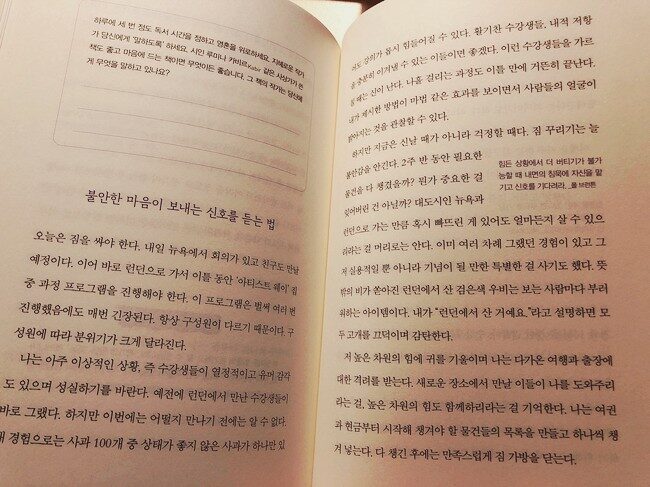 하루에 세 번 정도 독서 시간을 정하고 영혼을 위로하세요. 지혜로운 작가
가 당신에게 '말하도록' 하세요. 시인 루미나 카비르Kabir 같은 사상가가 쓴
책도 좋고 마음에 드는 책이면 무엇이든 좋습니다. 그 책의 작가는 당신에
게 무엇을 말하고 있나요?
불안한 마음이 보내는 신호를 듣는 법
오늘은 짐을 싸야 한다. 내일 뉴욕에서 회의가 있고 친구도 만날
예정이다. 이어 바로 런던으로 가서 이틀 동안 '아티스트 웨이' 집
중 과정 프로그램을 진행해야 한다. 이 프로그램은 벌써 여러 번
진행했음에도 매번 긴장된다. 항상 구성원이 다르기 때문이다. 구
성원에 따라 분위기가 크게 달라진다.
나는 아주 이상적인 상황, 즉 수강생들이 열정적이고 유머 감각
도 있으며 성실하기를 바란다. 예전에 런던에서 만난 수강생들이
바로 그랬다. 하지만 이번에는 어떨지 만나기 전에는 알 수 없다.
경험으로는 사과 100개 중 상태가 좋지 않은 사과가 하나만 있
도 강의가 몹시 힘들어질 수 있다. 활기찬 수강생들, 내적 저항
을 충분히 이겨낼 수 있는 이들이면 좋겠다. 이런 수강생들을 가르
칠 때는 신이 난다. 나흘 걸리는 과정도 이틀 만에 거뜬히 끝난다.
내가 제시한 방법이 마법 같은 효과를 보이면서 사람들의 얼굴이
밝아지는 것을 관찰할 수 있다.
하지만 지금은 신날 때가 아니라 걱정할 때다. 짐 꾸리기는 늘
불안감을 안긴다. 2주 반 동안 필요한
물건을 다 챙겼을까? 뭔가 중요한 걸
잊어버린 건 아닐까? 대도시인 뉴욕과
힘든 상황에서 더 버티기가 불가
능할 때 내면의 침묵에 자신을 맡
기고 신호를 기다려라. _폴 브런튼
런던으로 가는 만큼 혹시 빠뜨린 게 있어도 얼마든지 살 수 있으
리라는 걸 머리로는 안다. 이미 여러 차례 그랬던 경험이 있고 그
저 실용적일 뿐 아니라 기념이 될 만한 특별한 걸 사기도 했다. 뜻
밖의 비가 쏟아진 런던에서 산 검은색 우비는 보는 사람마다 부러
워하는 아이템이다. 내가 "런던에서 산 거예요."라고 설명하면 모
두 고개를 끄덕이며 감탄한다.
저 높은 차원의 힘에 귀를 기울이며 나는 다가온 여행과 출장에
대한 격려를 받는다. 새로운 장소에서 만날 이들이 나를 도와주리
라는 걸, 높은 차원의 힘도 함께하리라는 걸 기억한다. 나는 여권
과 현금부터 시작해 챙겨야 할 물건들의 목록을 만들고 하나씩 챙
겨 넣는다. 다 챙긴 후에는 만족스럽게 짐 가방을 닫는다.